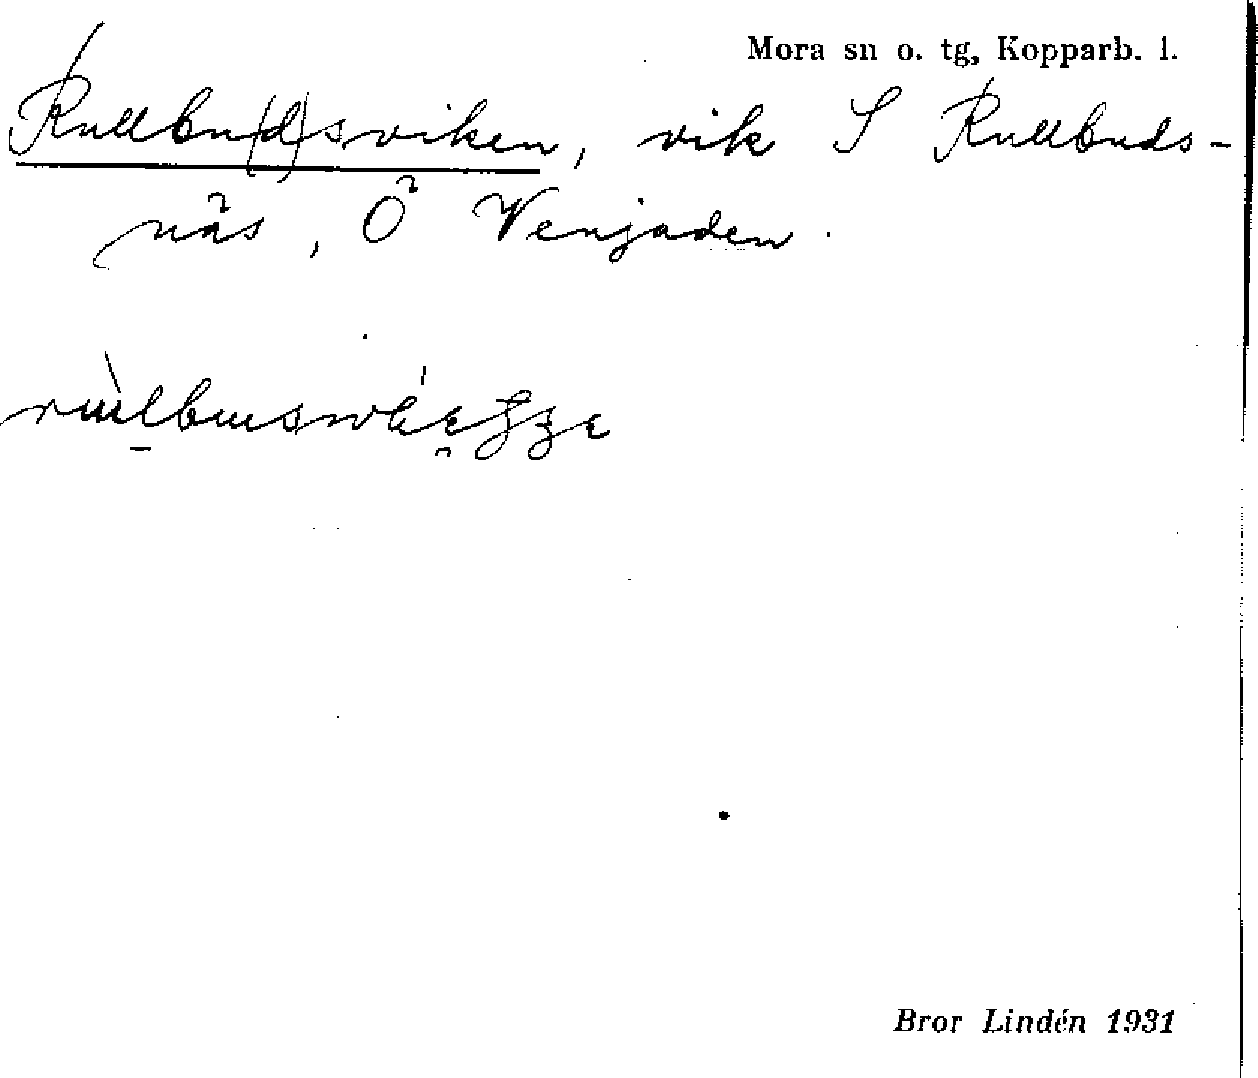 Mora sn o. tg, Kopparb. l.
Rullbu(d)sviken, vik S Rullbuds-
näs, Ö Venjaden.
Bror Lindén 1931